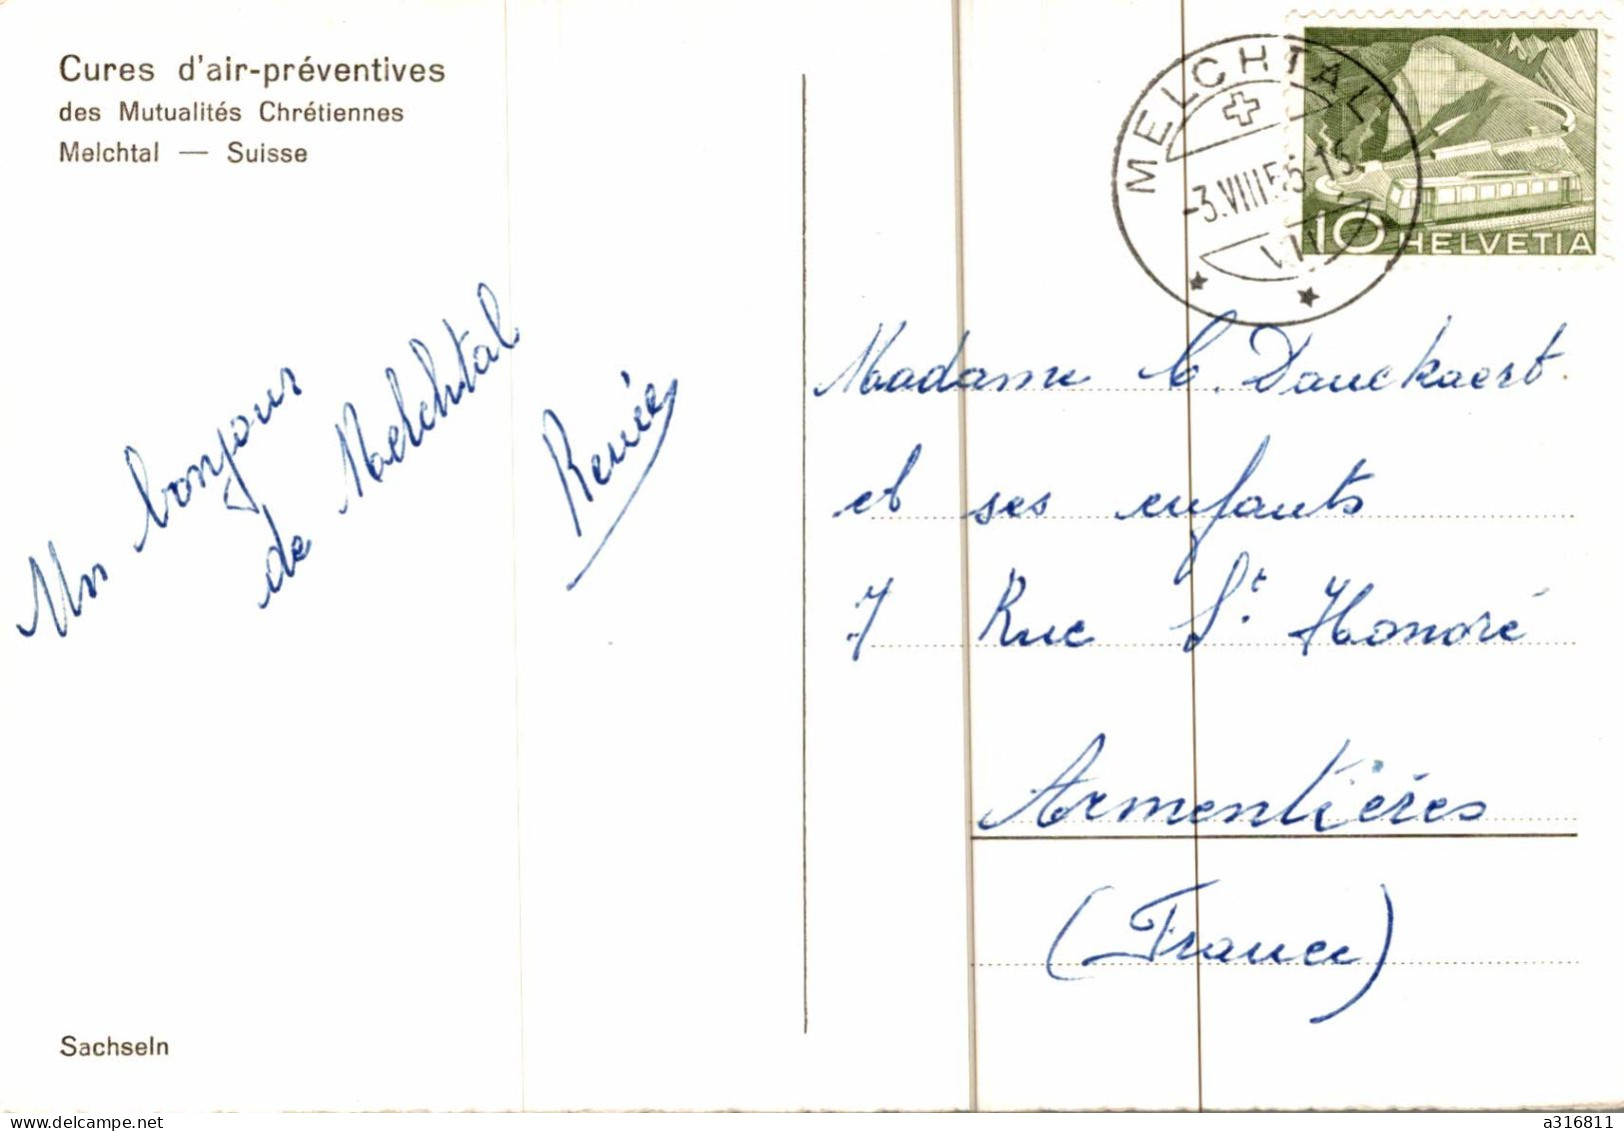 Cures d'air-préventives
des Mutualités Chrétiennes
Melchtal — Suisse
MELCHTAL
-3.VIII.55-15
10 HELVETIA
Un bonjour
de Melchtal
Renée
Madame C. Danckaert.
et ses enfants
7 Rue St. Honoré
Armentières
(France)
Sachseln
www.delcampe.net
a316811